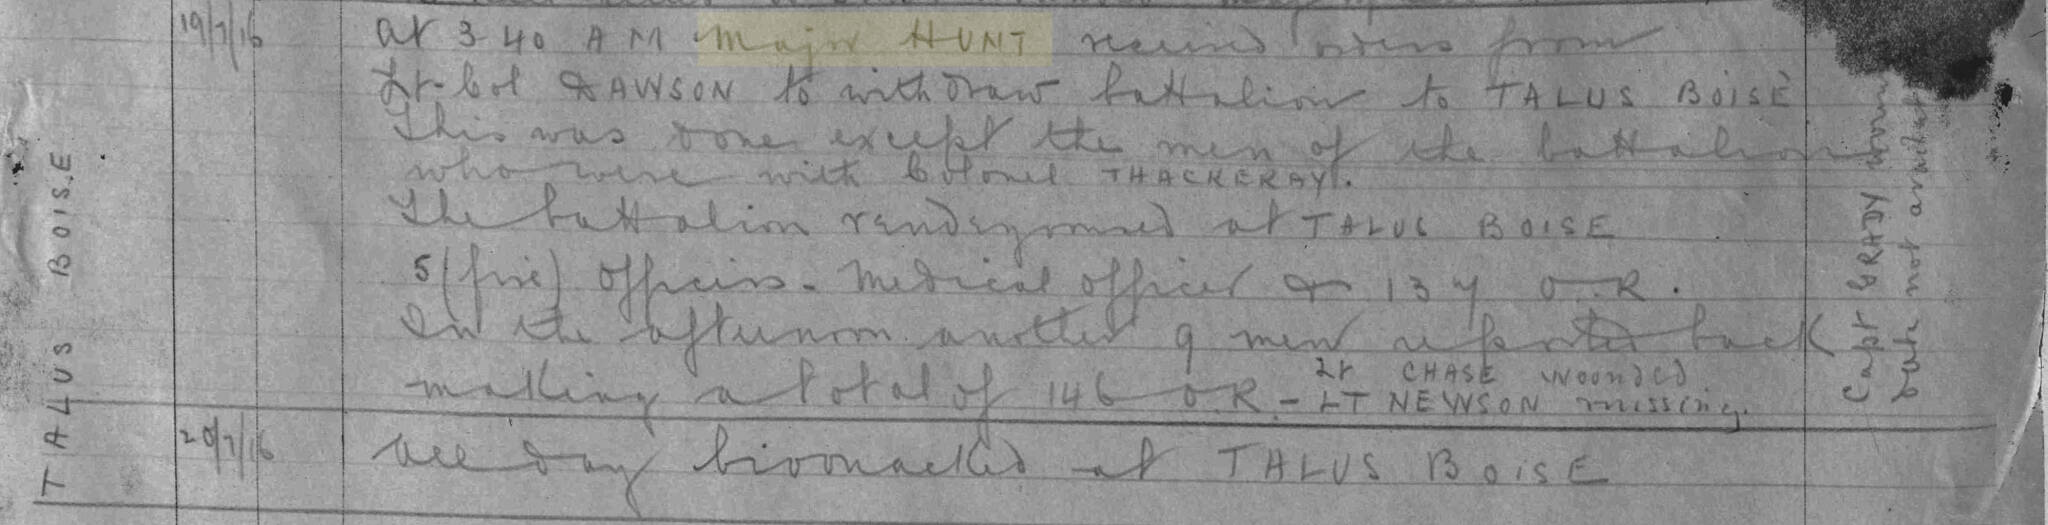 TALUS BOISE
19/7/16
at 3 40 AM Major HUNT received orders from
Lt-Col DAWSON to withdraw battalion to TALUS BOISÉ
This was done except the men of the battalion
who were with Colonel THACKERAY.
The battalion rendezvoused at TALUS BOISE
5 (five) Officers - Medical officer & 137 O.R.
In the afternoon another 9 men reported back
making a total of 146 O.R. - Lt CHASE wounded
LT NEWSON missing.
Capt GRADY
but not
20/7/16
All day bivouacked at TALUS BOISE